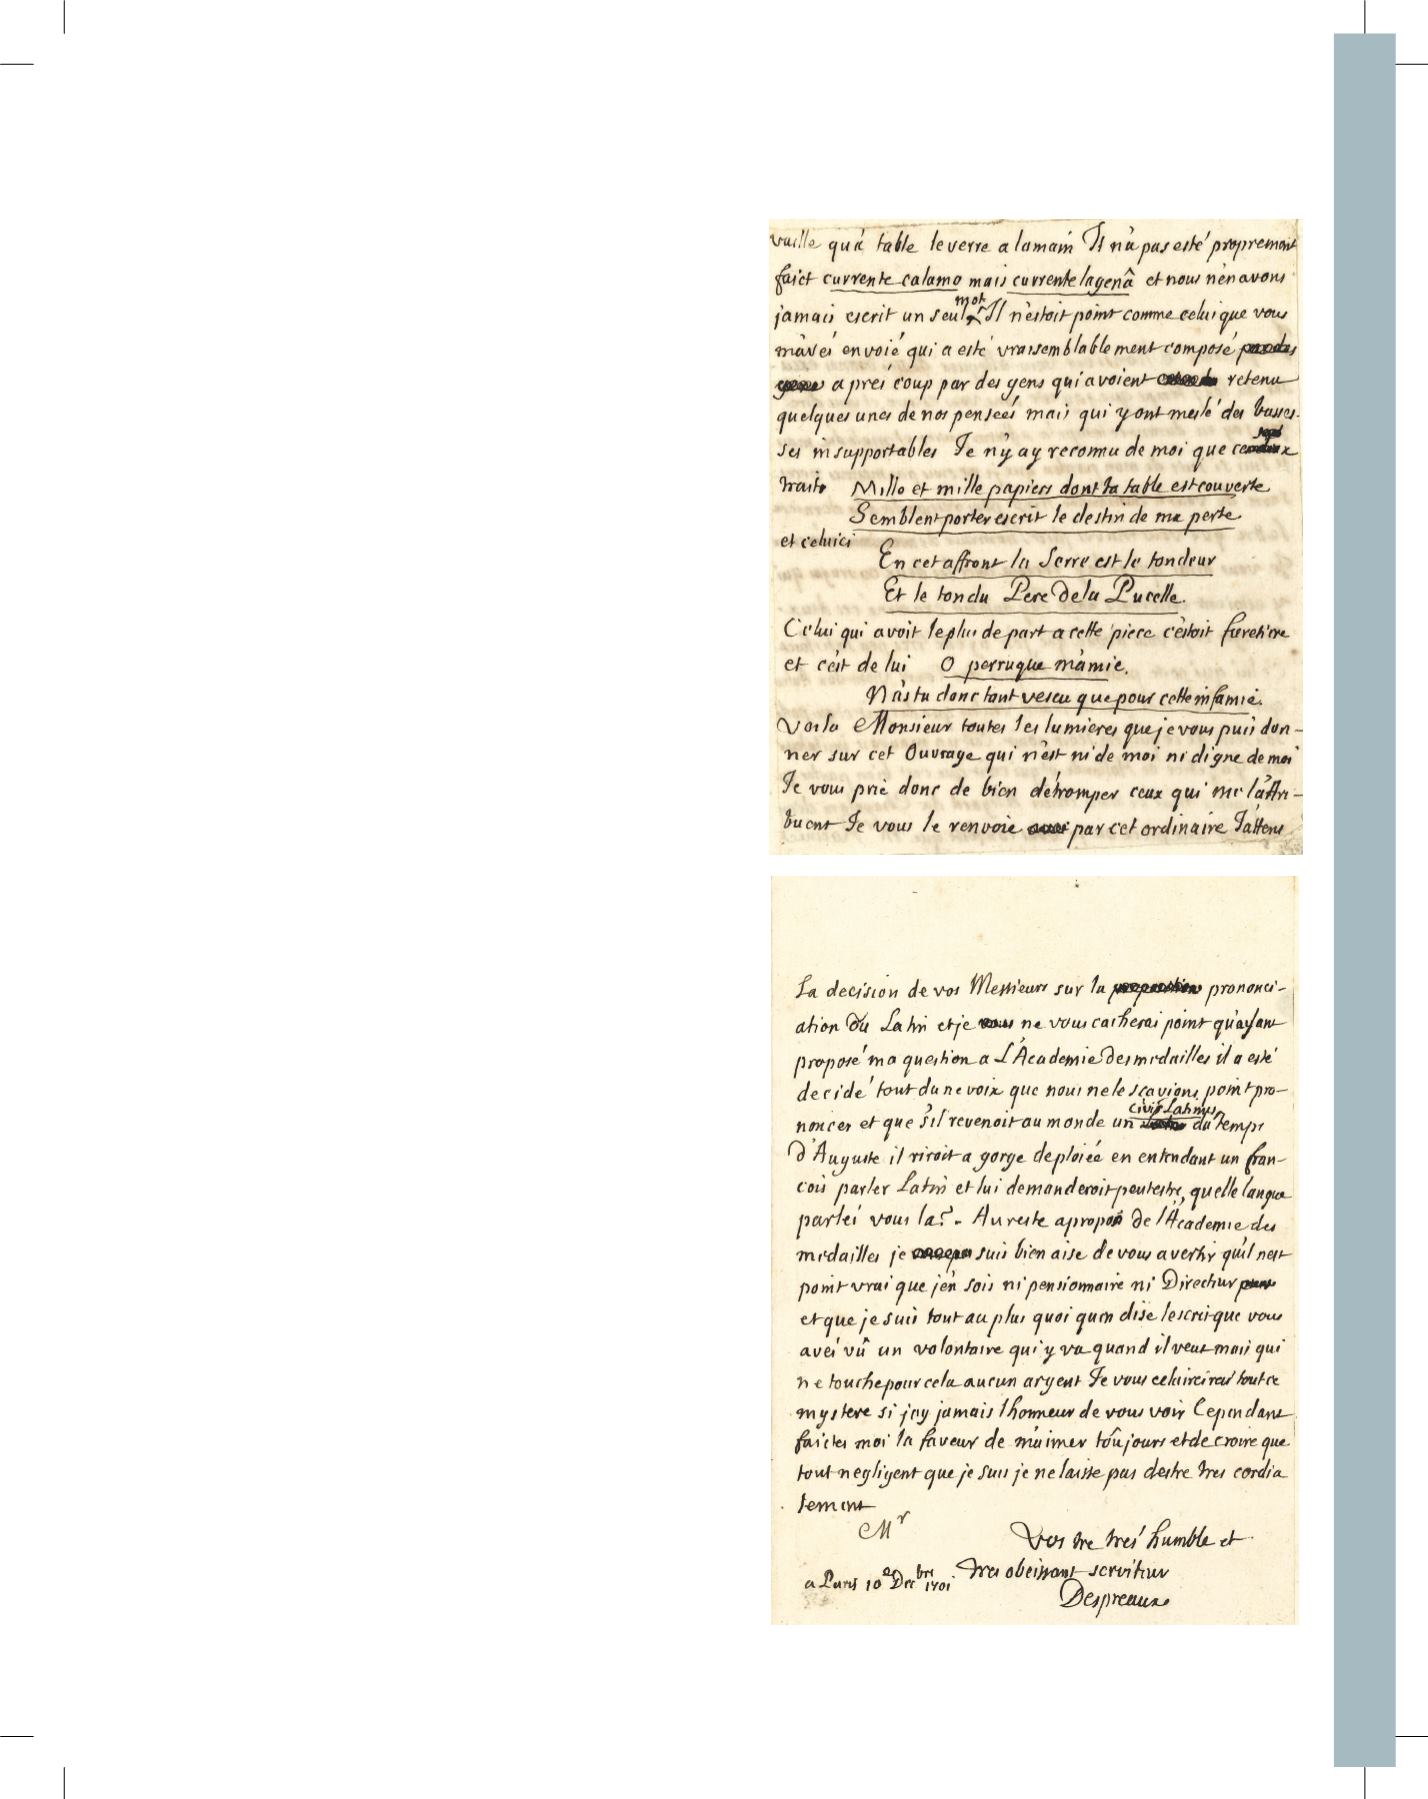 vaille qu'à table le verre a la main Il n'a pas esté proprement
faict currente calamo mais currente lagenâ et nous n'en avons
jamais escrit un seul mot Il n'estoit point comme celui que vous
m'avés envoié qui a esté vraisemblablement composé
aprés coup par des gens qui avoient retenu
quelques unes de nos pensées mais qui y ont meslé des basses-
ses insupportables Je n'y ay reconnu de moi que ce
trait Mille et mille papiers dont la table est couverte
Semblent porter escrit le destin de ma perte
et celuici En cet affront la Serre est le tondeur
Et le tondu Pere de la Pucelle.
Celui qui avoit le plus de part a cette piece c'estoit furetiere
et c'est de lui O perruque m'amie.
N'as tu donc tant vescu que pour cette infamie.
Voila Monsieur toutes les lumieres que je vous puis don-
ner sur cet Ouvrage qui n'est ni de moi ni digne de moi
Je vous prie donc de bien détromper ceux qui me l'attri-
buent Je vous le renvoie par cet ordinaire J'attens
La decision de vos Messieurs sur la prononci-
ation du Latin et je ne vous cacherai point qu'ayant
proposé ma question a L'Academie des medailles il a esté
decidé tout d'une voix que nous ne le scavions point pro-
noncer et que s'il revenoit au monde un civis Latinus du temps
d'Auguste il riroit a gorge deploiée en entendant un fran-
cois parler Latin et lui demanderoit peutestre, quelle langue
parlés vous la? - Au reste a propos de l'Academie des
medailles je suis bien aise de vous avertir qu'il n'est
point vrai que j'en sois ni pensionnaire ni Directeur
et que je suis tout au plus quoi qu'en dise l'escrit que vous
avés vû un volontaire qui y va quand il veut mais qui
ne touche pour cela aucun argent Je vous eclaircirai tout ce
mystere si j'ay jamais l'honneur de vous voir Cependant
faictes moi la faveur de m'aimer toûjours et de croire que
tout negligent que je suis je ne laisse pas d'estre tres cordia
lement
Mr
Vostre trés humble et
tres obeissant serviteur
a Paris 10e Decbre 1701
Despreaux